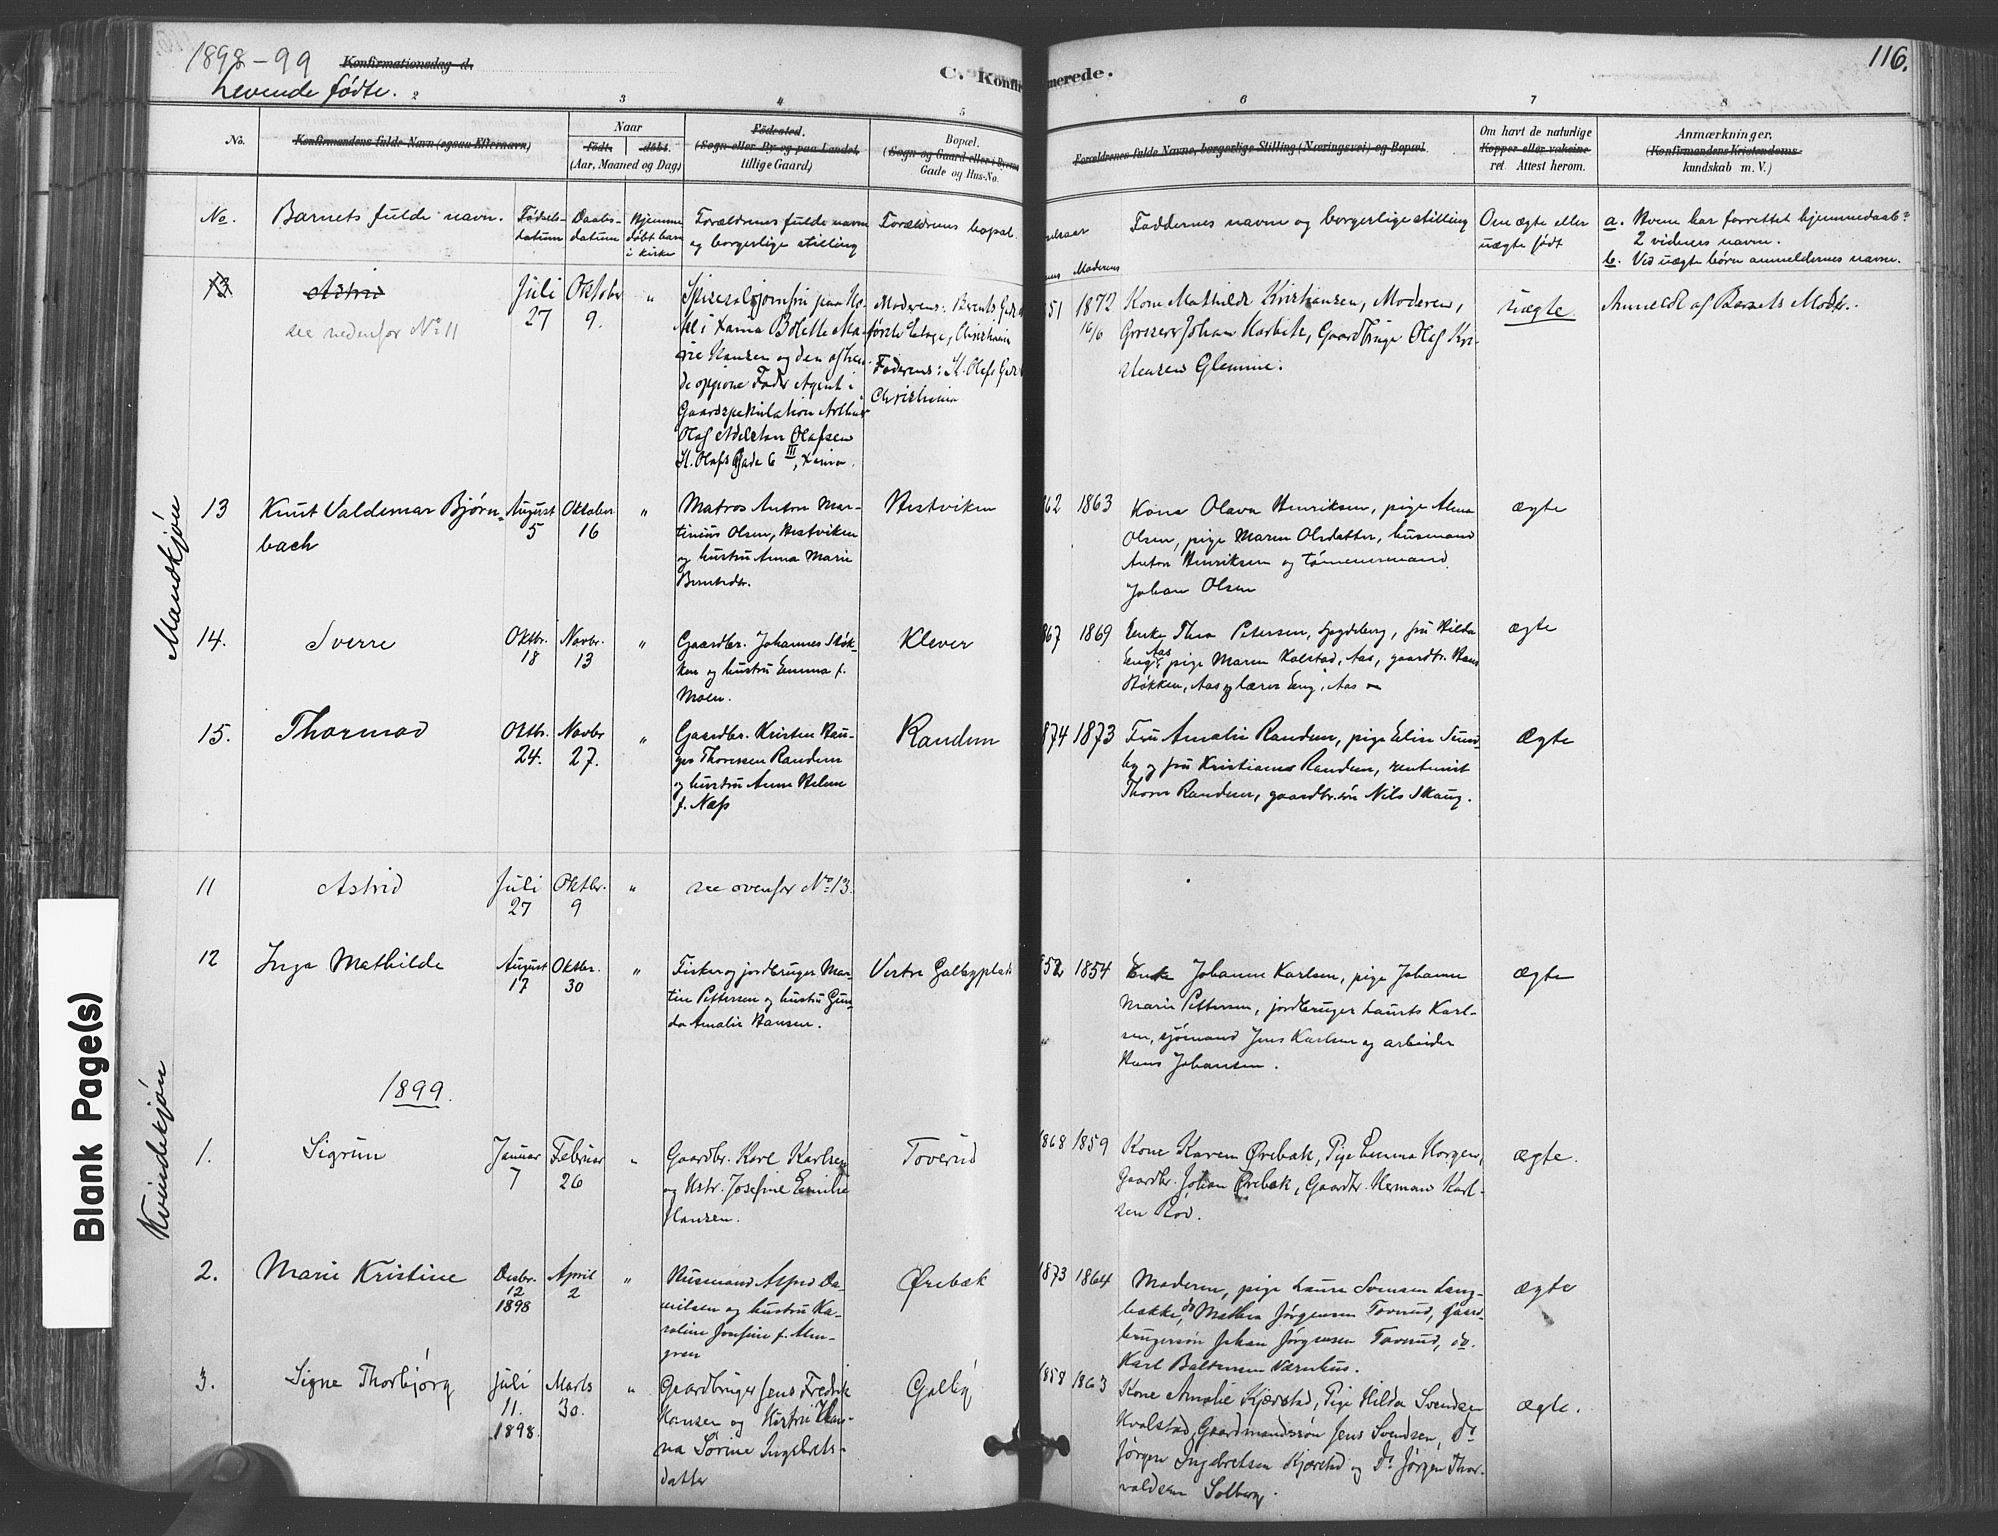 1898-99
Konfirmationsdag d.
C. Konfirmerede.
116.
Levende fødte.
2
3
4
5
6
7
8
No.
Konfirmandens fulde Navn (ogsaa Efternavn)
Naar
født.
døbt.
(Aar, Maaned og Dag)
Fødested.
(Sogn eller By og paa Landet
tillige Gaard)
Bopæl.
(Sogn og Gaard eller i Byerne
Gade og Hus-No.
Forældrenes fulde Navne, borgerlige Stilling (Næringsvei) og Bopæl.
Om havt de naturlige
Kopper eller vakcineret.
Attest herom.
Anmærkninger.
(Konfirmandens Kristendoms
kundskab m. V.)
No.
Barnets fulde navn.
Fødsels-
datum
Daabs-
datum
Hjemme
døbt barn
i kirke
Forældrenes fulde navn
og borgerlige stilling
Forældrenes bopæl.
Moderens
Faddernes navne og borgerlige stilling
Om ægte eller
uægte født
a. Hvem har forrettet hjemmedaab?
2 vidners navne.
b. Ved uægte børn anmeldernes navne.
13
Astrid
see nedenfor No 11
Juli
27
Oktober
9.
"
Mari i Xania Bolette Ma-
rie Hansen og den
opgivne Fader Agent i
Gaardspekulation Arthur
Olaf Adelstan Olafsen
St. Olafs Gade 6 III, Xania.
Moderens: Berents Gade
første Etage, Christiania
Faderens: St. Olafs Gade
Christiania
51
1872
16/6
Kone Mathilde Kristiansen, Moderen,
Grosserer Johan Karbeth, Gaardbruger Olaf Kri-
stensen Glemme.
uægte
Anmeldt af Barnets Moder.
Mandkjøn
13
Knut Valdemar Bjørn-
bach
August
5
Oktober
16
"
Matros Anton Mar-
tinius Olsen, Hestviken
og hustru Anna Marie
Berntsdtr.
Hestviken
62
1863
Kone Olava Henriksen, pige Alma
Olsen, pige Maren Olsdatter, husmand
Anton Henriksen og tømmermand
Johan Olsen
ægte
14.
Sverre
Oktbr.
18
Novbr.
13
"
Gaardbr. Johannes Støk-
ken og hustru Emma f.
Moen.
Klever
67
1869
Enke Thea Petersen, Høgdeberg, fru Hilda
Eng, Aas, pige Maren Kolstad, Aas, gaardbr. Hans
Støkken, Aas og lærer Eng, Aas
ægte
15.
Thormod
Oktbr.
24.
Novbr
27.
"
Gaardbr. Kristen Hau-
ges Thoresen Randem
og hustru Anne Helene
f. Næss
Randem
874
1873
Fru Amalie Randem, pige Elise Sund-
by og fru Kristiane Randem, rentenist
Thore Randem, gaardbr.søn Nils Skaug.
Ægte
11
Astrid
Juli
27
Oktbr.
9
"
see ovenfor No 13.
12
Inga Mathilde
August
17
Oktbr.
30
"
Fisker og jordbruger Mar-
tin Pettersen og hustru Gun-
da Amalie Hansen.
Vestre Galbyplads
852
1854
Enke Johanne Karlsen, pige Johanne
Marie Pettersen, jordbruger Laurits Karl-
sen, sjømand Jens Karlsen og arbeider
Hans Johansen.
ægte
Kvindekjøn
1899.
1.
Sigrun
Januar
7
Februar
26
"
Gaardbr. Karl Karlsen
og Hstr. Josefine Emilie
Hansen.
Toverud
1868
1859
Kone Karen Ørebæk, Pige Emma Horgen,
Gaardbr. Johan Ørebæk, Gaardbr. Herman Karl-
sen Rød.
ægte.
2.
Marie Kristine
Desbr.
12
1898
April
2
"
Husmand Alfred Da-
nielsen og hustru Ka-
roline Josefine f. Alm-
gren
Ørebæk
1873
1864
Moderen, pige Laura Svensen Lang-
bakke, do Mathea Jørgensen Toverud, gaard-
brugersøn Johan Jørgensen Toverud, do.
Karl Baltersen Værnhus.
ægte
3.
Signe Thorbjørg
Juli
11.
1898.
Marts
30.
"
Gaardbruger Jens Fredrik
Hansen og Hustru Han-
na Sørine Ingebrets-
datter
Galby
1858
1863
Kone Amalie Kjærstad, Pige Hilda Svendsen
Kvalstad, Gaardmandssøn Jens Svendsen, Do
Jørgen Ingebretsen Kjærstad og Do Jørgen Thor-
valdsen Solberg.
ægte.
Blank Page(s)